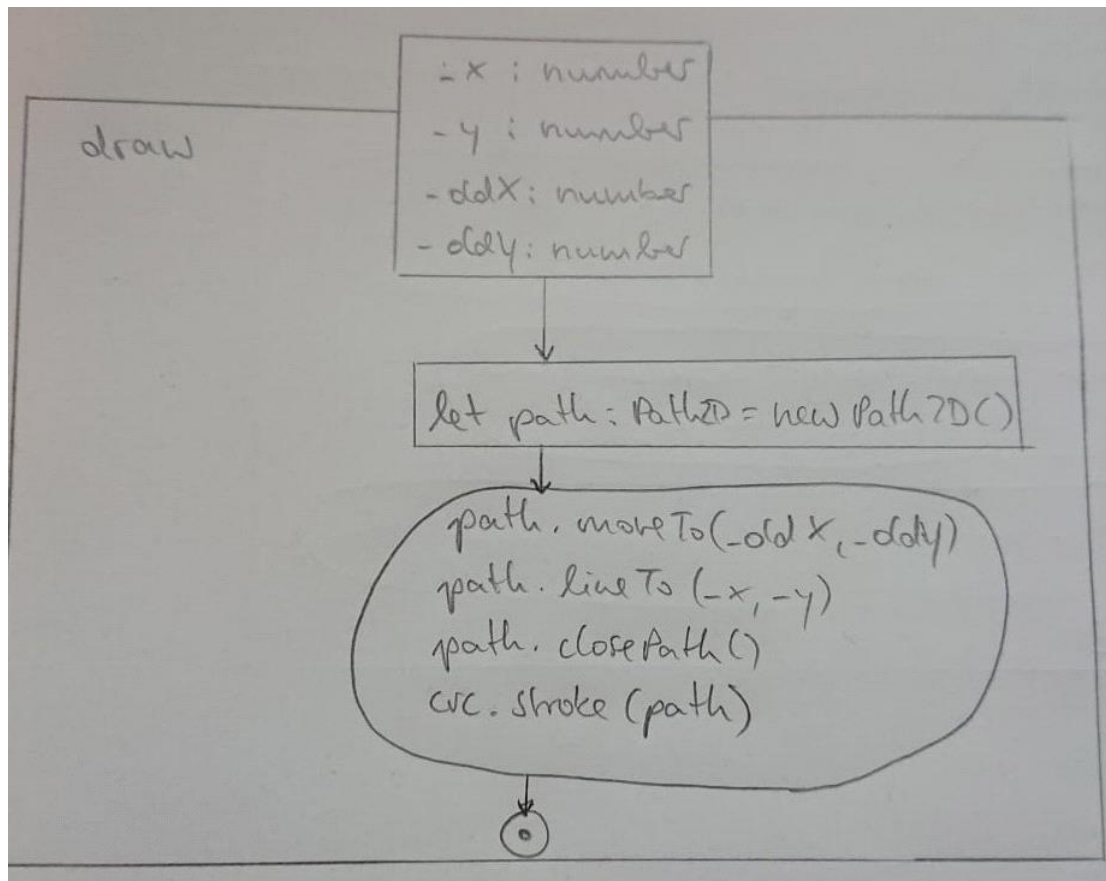 draw
_x : number
_y : number
_oldX : number
_oldY : number
let path : Path2D = new Path2D()
path.moveTo(_oldX, _oldY)
path.lineTo(_x, _y)
path.closePath()
crc.stroke(path)